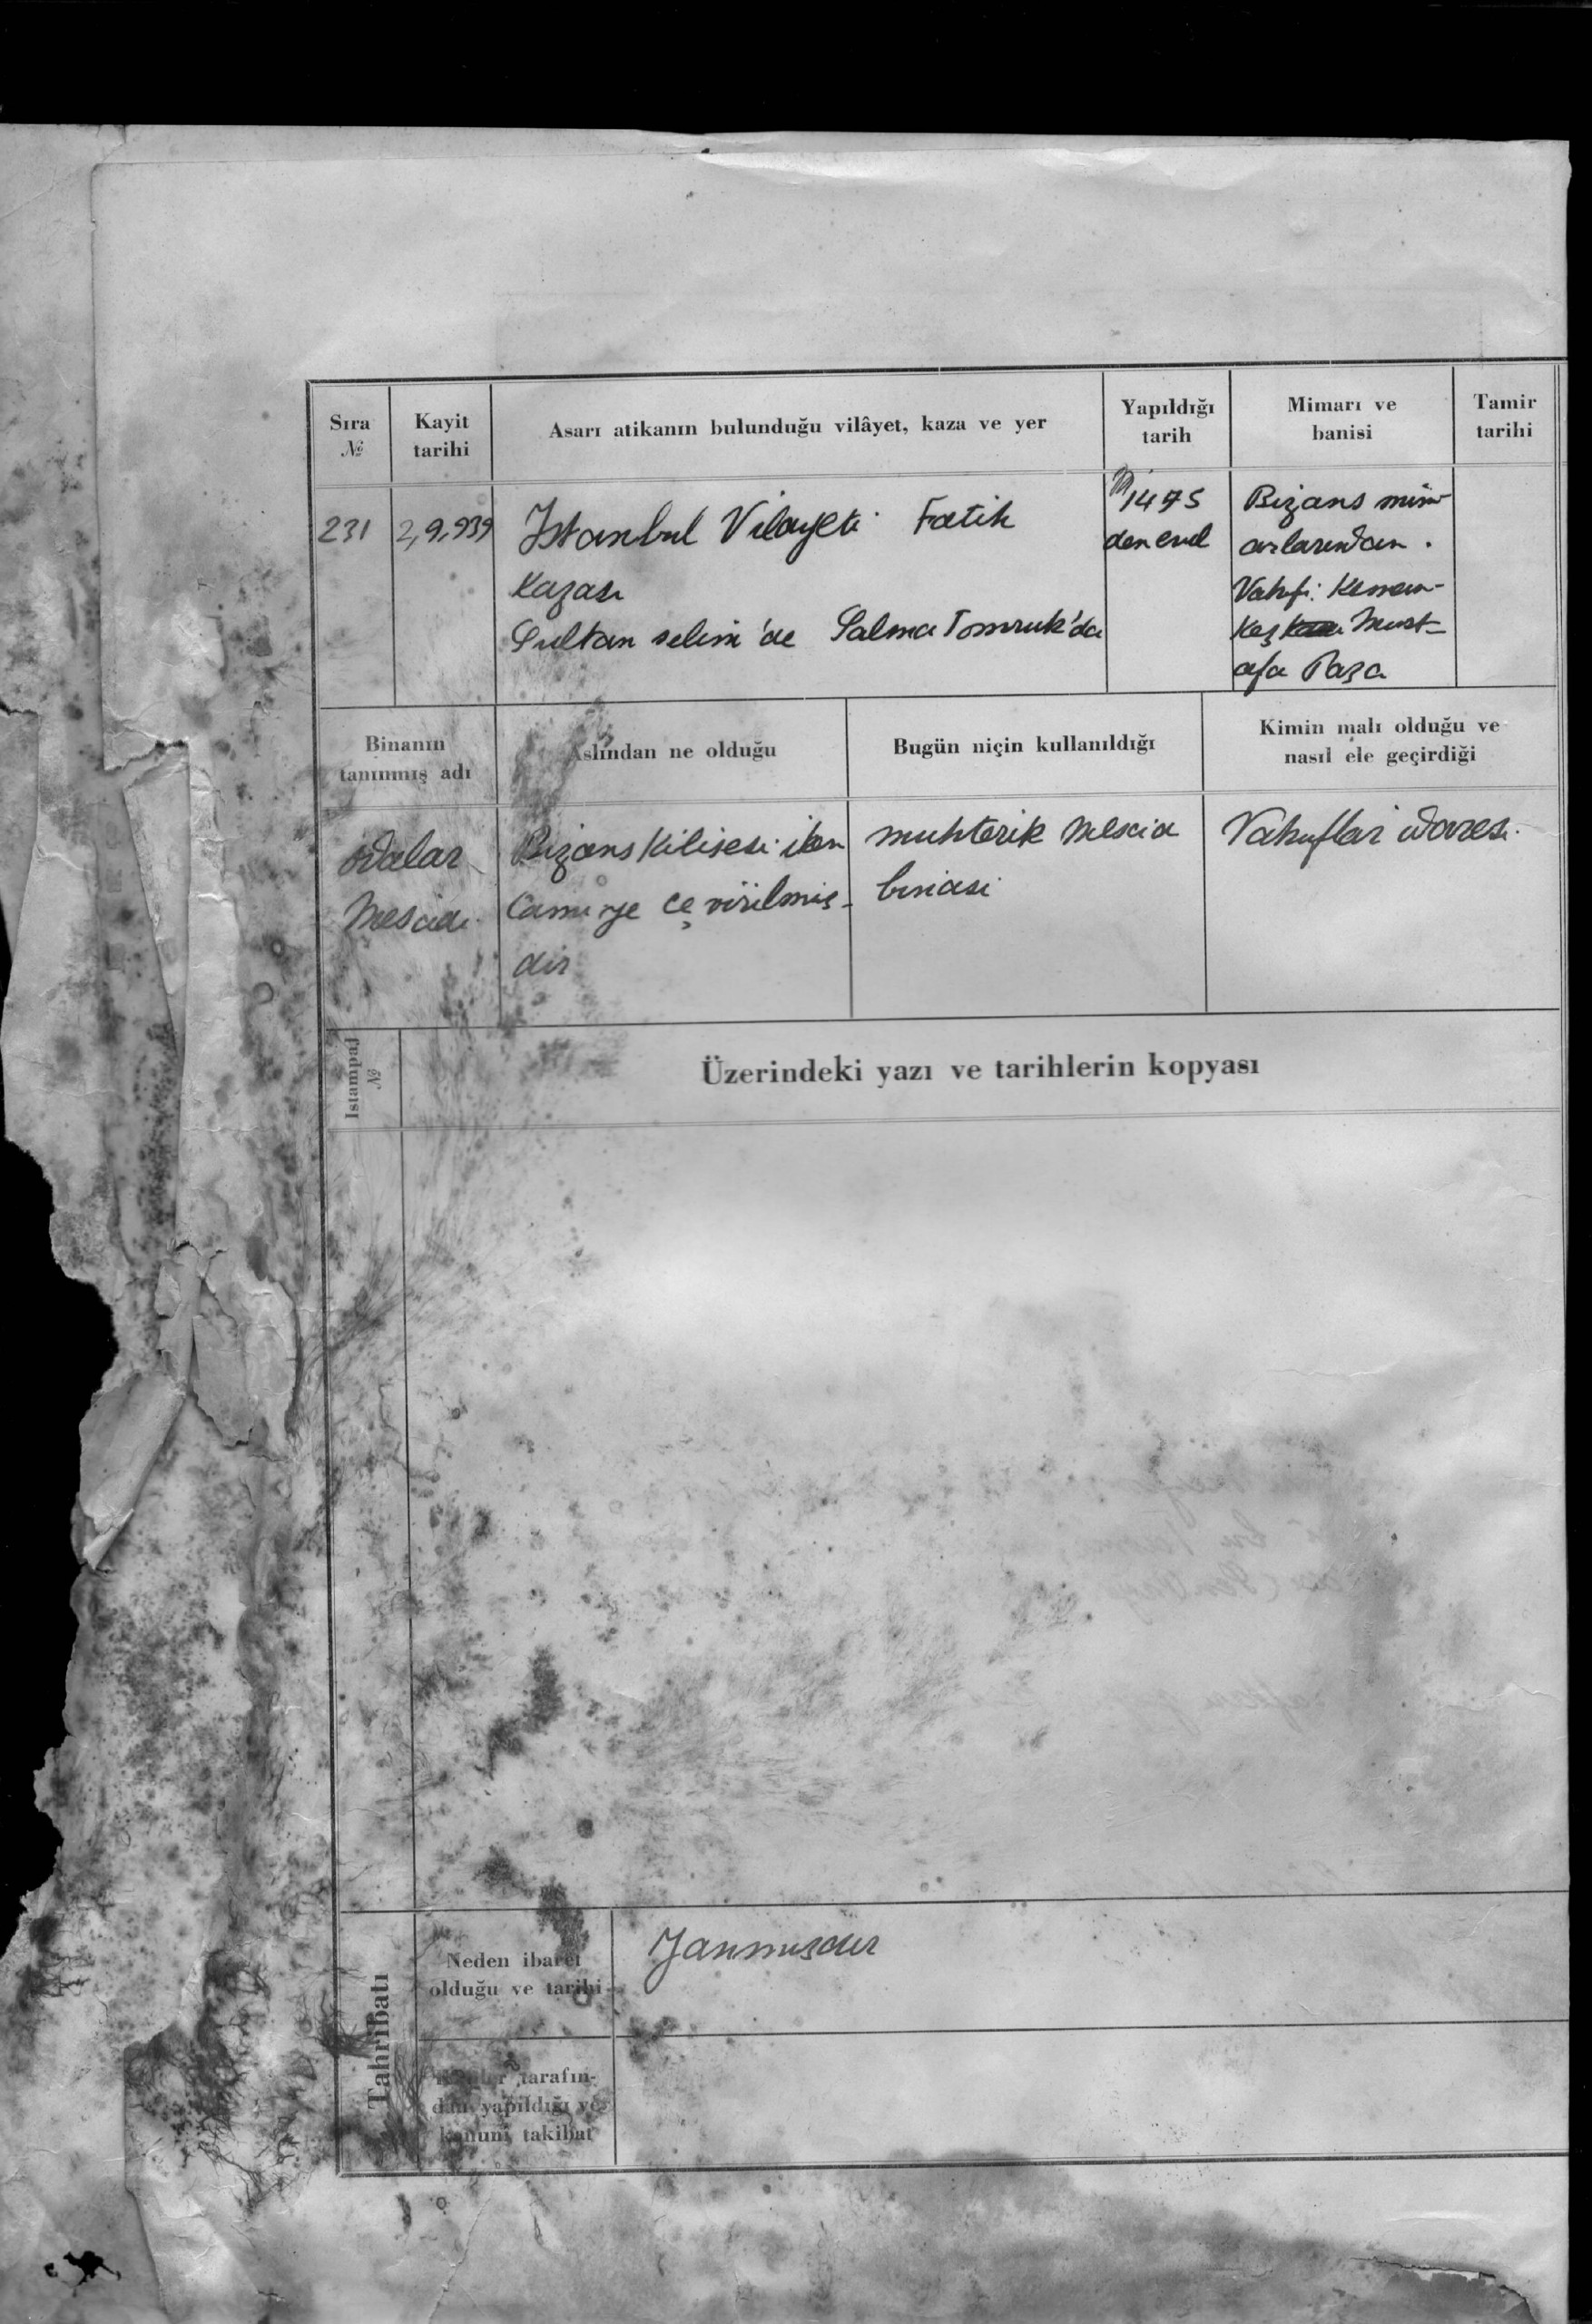 Sıra № Kayit tarihi Asarı atikanın bulunduğu vilâyet, kaza ve yer Yapıldığı tarih Mimarı ve banisi Tamir tarihi
231
2,9,939
Istanbul Vilayeti Fatih
Kazası
Sultan selim'de Salma Tomruk'da
1475
den evel
Bizans mim-
arlarından.
Vakfi: Keman-
Keş Must-
afa Paşa
Binanın tanınmış adı
Aslından ne olduğu
Bugün niçin kullanıldığı
Kimin malı olduğu ve nasıl ele geçirdiği
odalar
Mescidi
Bizans Kilisesi iken
Camiye çevirilmiş-
dir
muhterik Mescid
binasi
Vakuflar idaresi
Istampaj №
Üzerindeki yazı ve tarihlerin kopyası
Tahribatı
Neden ibaret
olduğu ve tarihi
Yanmışdır
tarafın-
dan yapıldığı ve
kanuni takibat